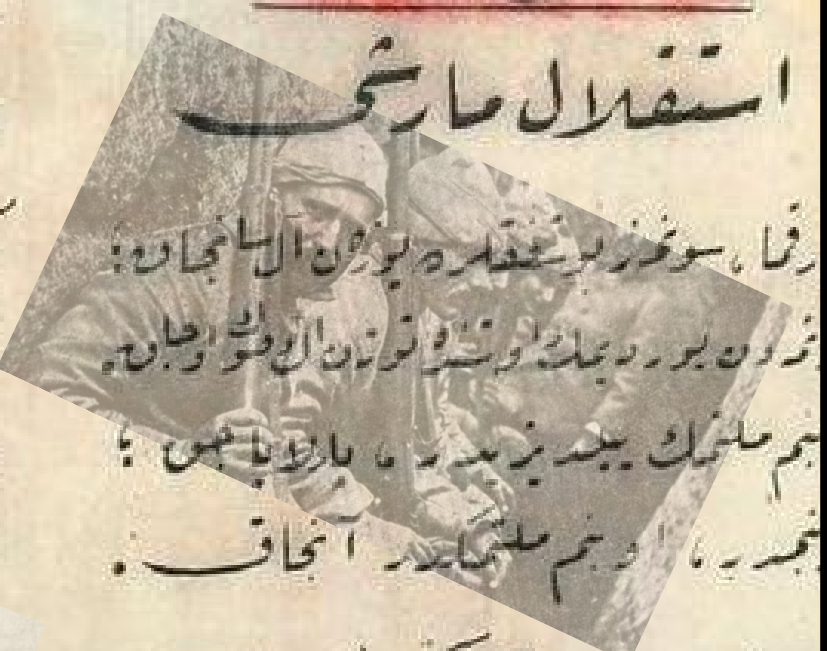 استقلال مارشى
رقما، سونمز بو شفقلرده يوزن آل سانجاق؛
يوردیمك اوستنده توتن اوجاق.
بنم ملتمك ييلديزيدر، پارلاياجق؛
نمدر، او بنم ملتمكدر آنجاق.